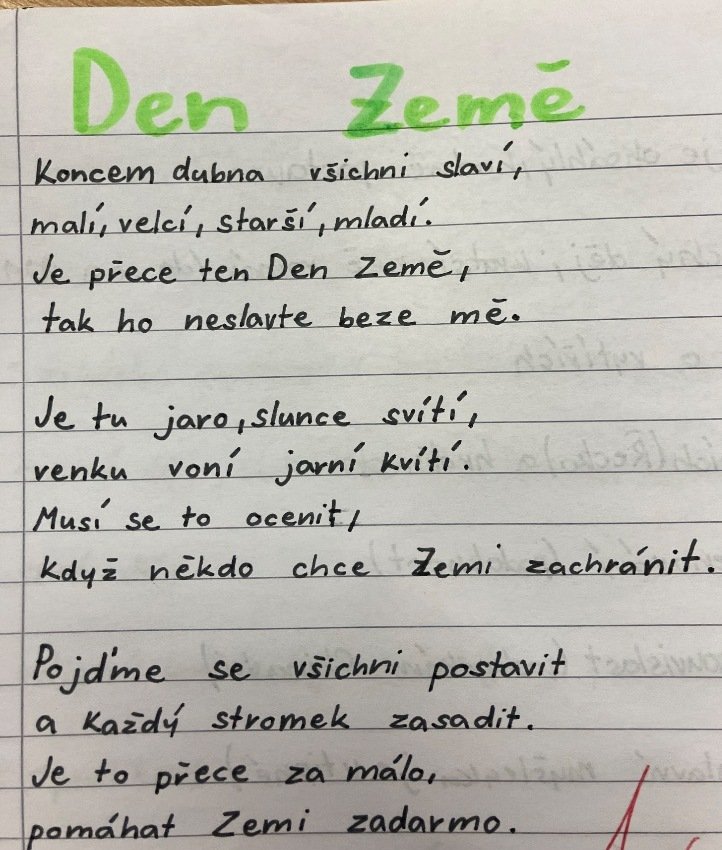 Den Země
Koncem dubna všichni slaví,
malí, velcí, starší, mladí.
Je přece ten Den Země,
tak ho neslavte beze mě.
Je tu jaro, slunce svítí,
venku voní jarní kvítí.
Musí se to ocenit,
když někdo chce Zemi zachránit.
Pojďme se všichni postavit
a každý stromek zasadit.
Je to přece za málo,
pomáhat Zemi zadarmo.